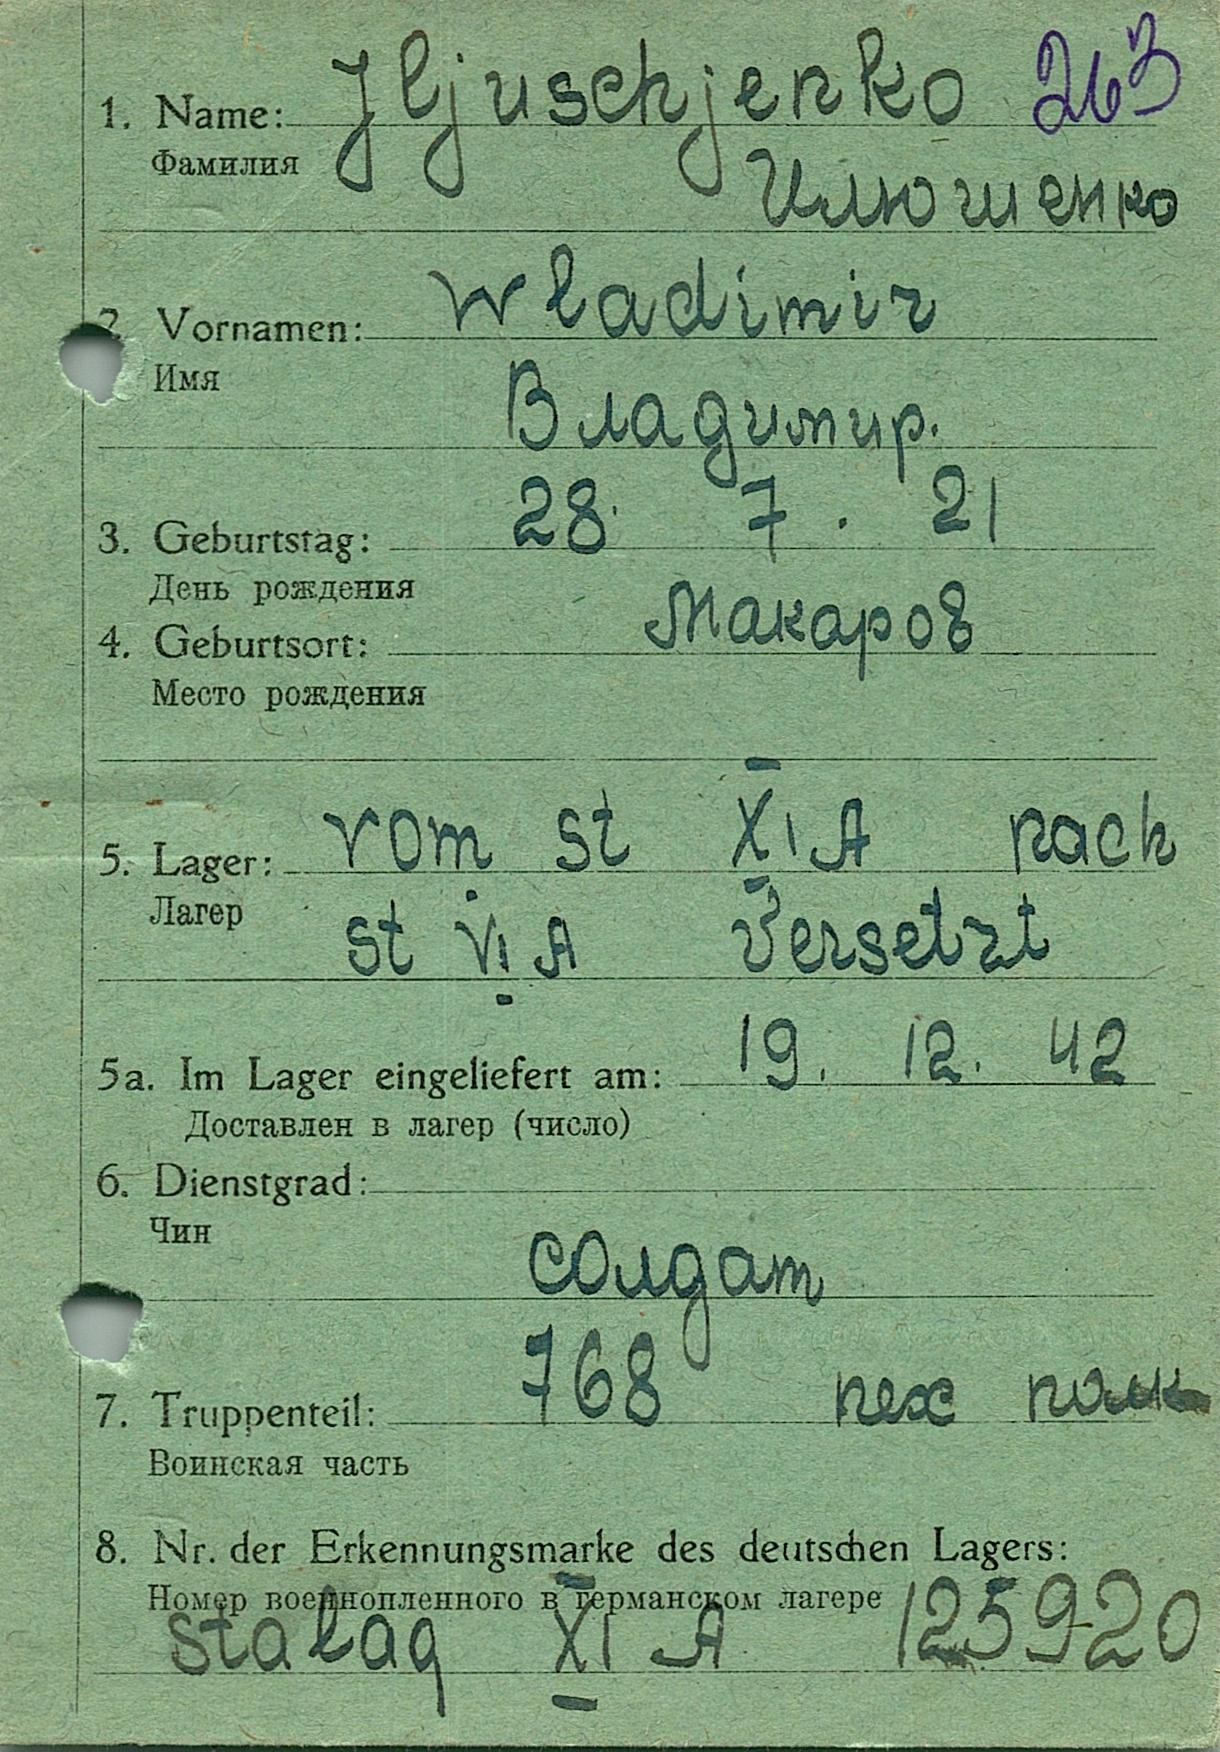 1. Name: Jljuschjenko 263
Фамилия
Илюшенко
2. Vornamen: Wladimir
Имя
Владимир.
3. Geburtstag: 28. 7. 21
День рождения
4. Geburtsort: Макаров
Место рождения
5. Lager: vom st XI A nach
Лагер
st VI A Versetzt
5a. Im Lager eingeliefert am: 19. 12. 42
Доставлен в лагер (число)
6. Dienstgrad:
Чин
солдат
7. Truppenteil: 768 пех полк
Воинская часть
8. Nr. der Erkennungsmarke des deutschen Lagers:
Номер военнопленного в германском лагере
stalag XI A 125920